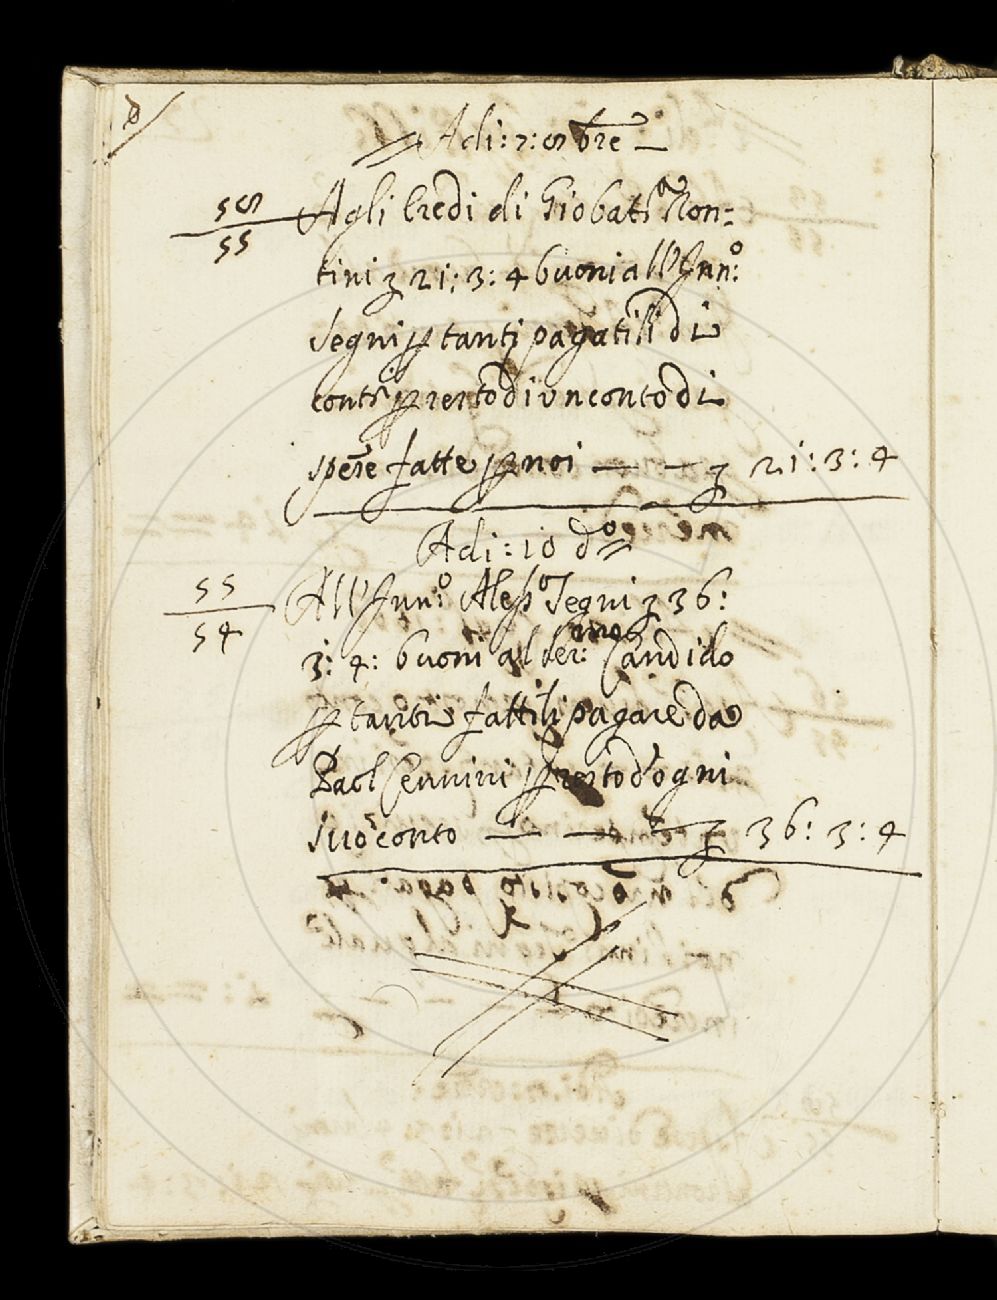 Adi: 7: 8bre
58
55
Agli Eredi di Giobatta Non=
tini 21: 3: 4 buoni all'Inn:o
Segni p tanti pagatili di
conti p resto di un conto di
spese fatte p noi — — 21: 3: 4
Adi: 10 do
55
54
All'Inn:o Aless:o Segni 36:
3: 4: buoni al Ser:mo Candido
p tanti fattili pagare da
Paol Cennini p resto d'ogni
suo conto — — 36: 3: 4